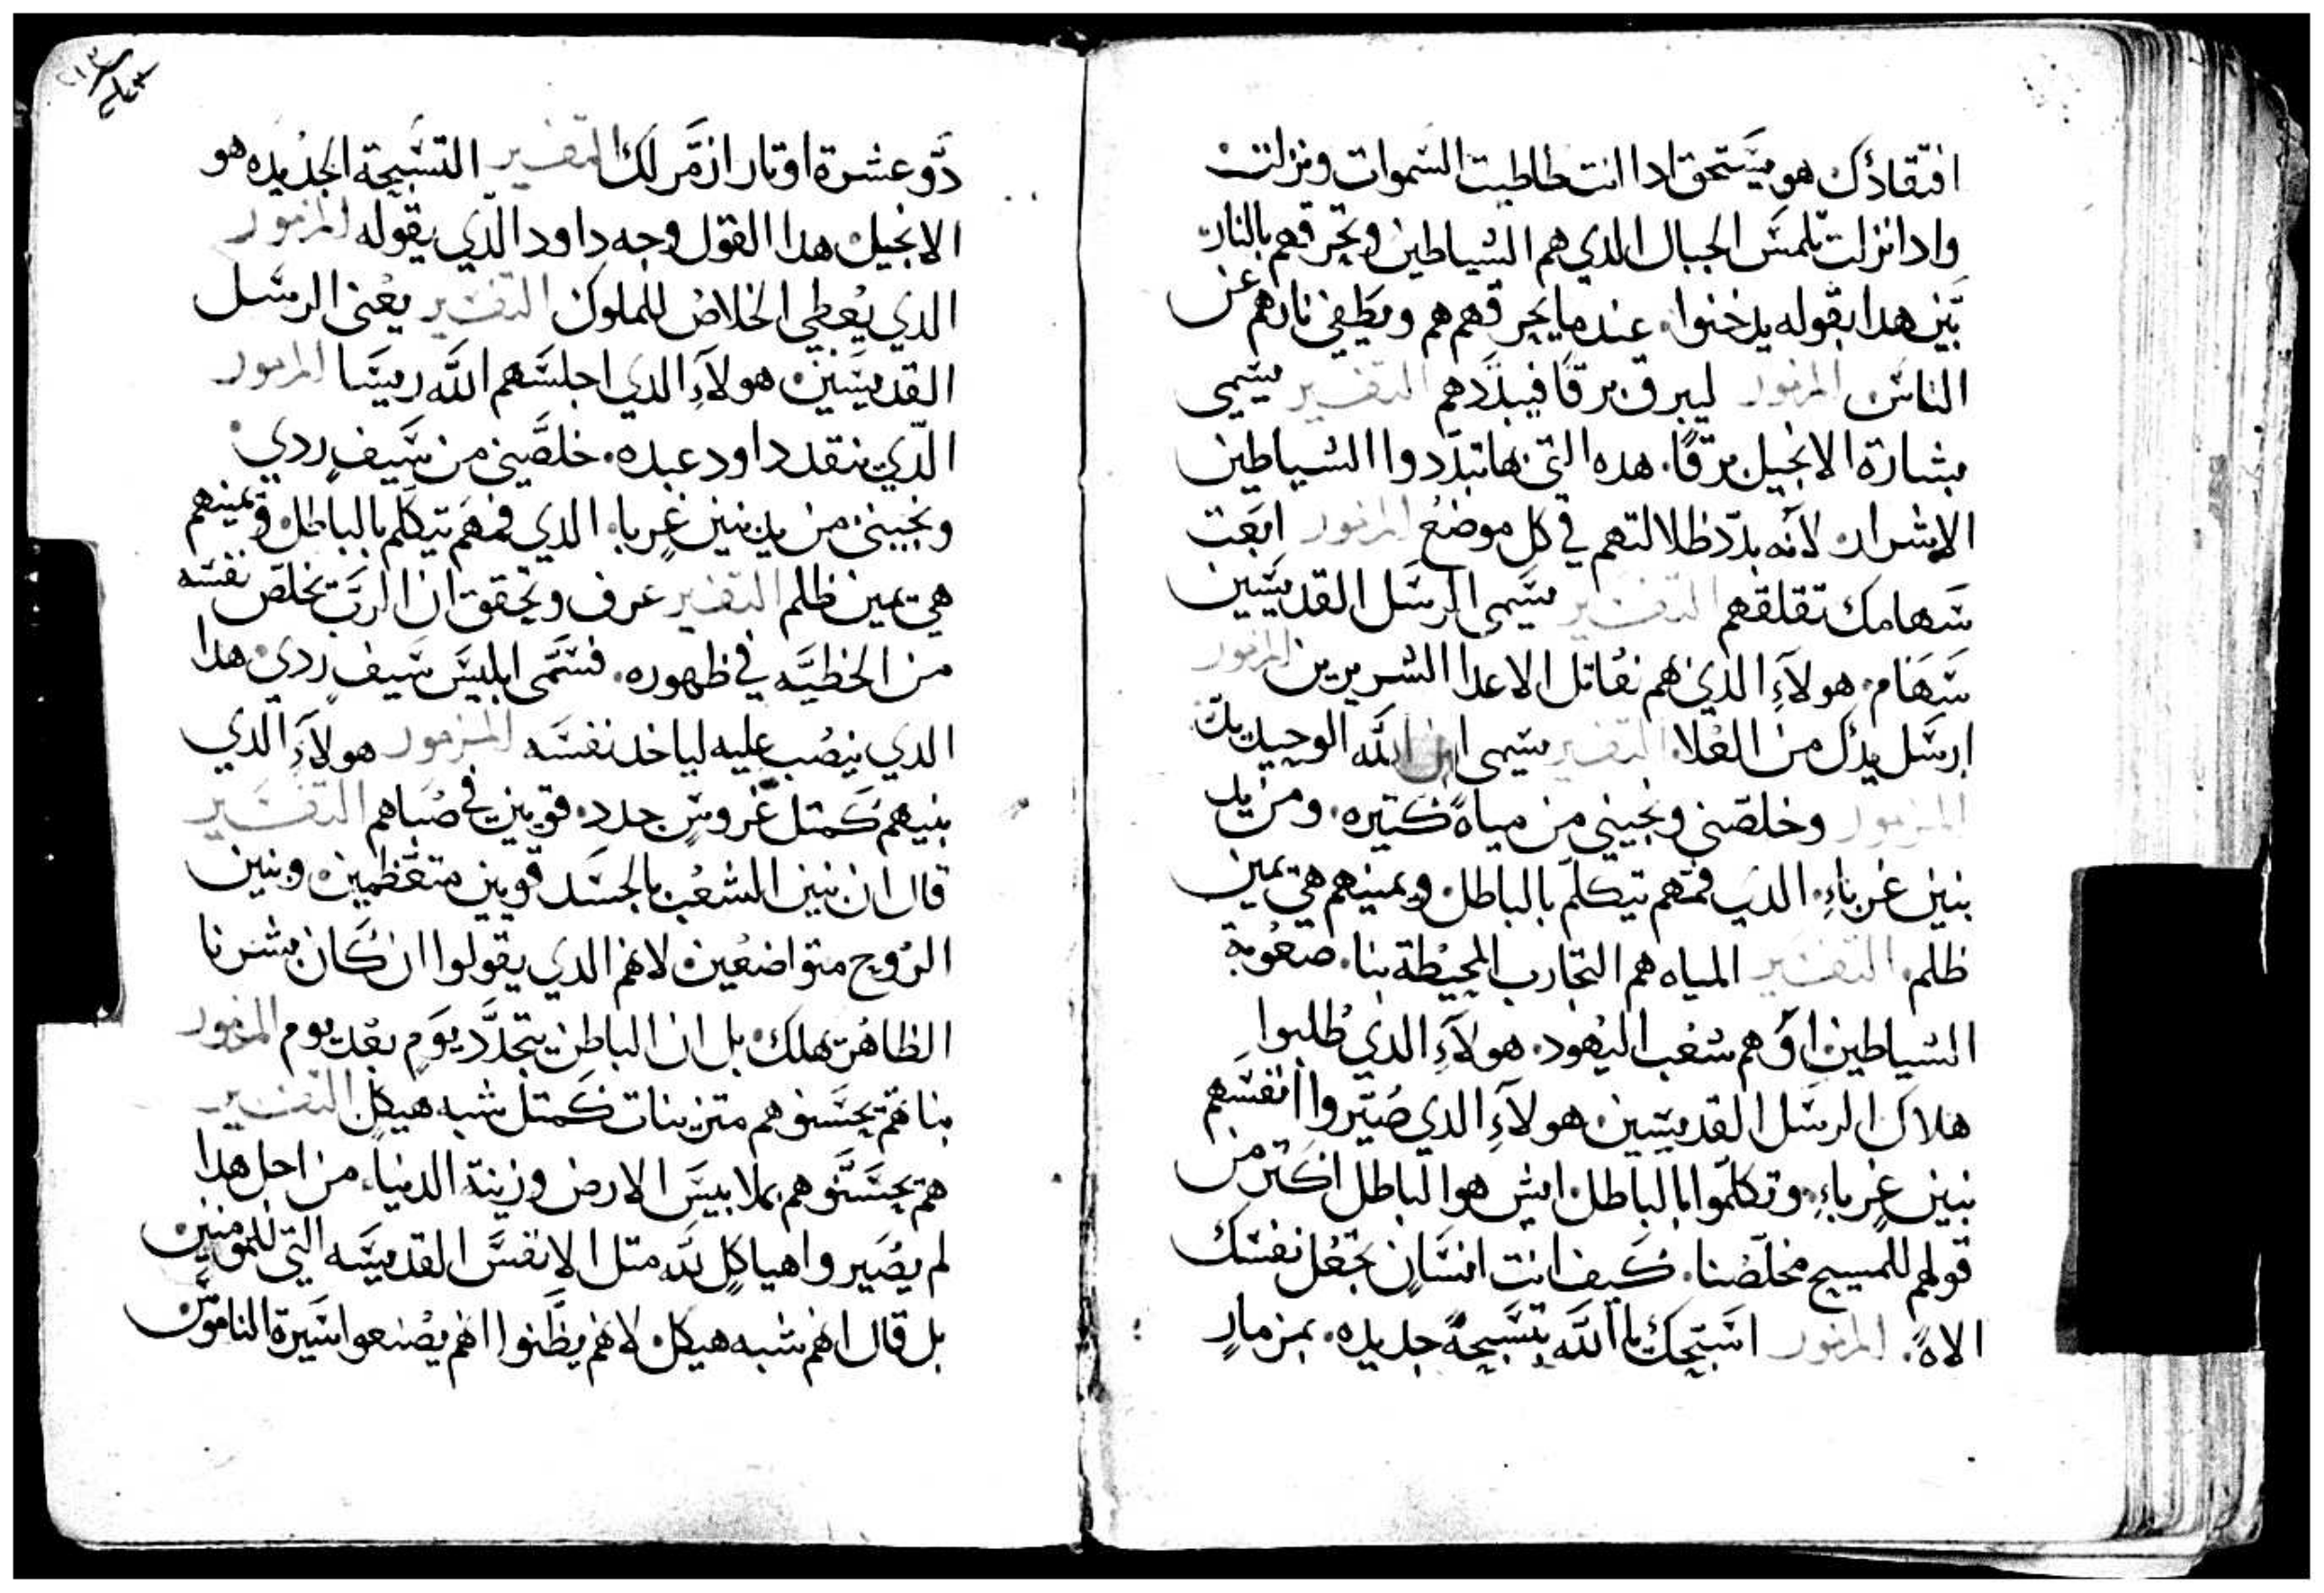 افتقادك هو يستحق ادا انت طاطيت السموات ونزلت
وادا نزلت تلمس الجبال الدي هم الشياطين وتحرقهم بالنار
بين هدا بقوله يدخنوا. عند ما يحرقهم هم ويطفي نارهم عن
الناس المزمور ليبرق برقا فيبددهم التفسير يسمى
بشارة الانجيل برقا. هده التي بها تبددوا الشياطين
الاشرار لانه بدد ظلالتهم في كل موضع المزمور ابعت
سهامك تقلقهم التفسير يسمى الرسل القديسين
سهام. هولآء الذين هم نقاتل الاعدا الشريرين المزمور
ارسل يدك من العلا التفسير يسمى ابن الله الوحيد يدك
المزمور وخلصني ونجيني من مياه كتيره. ومن يد
بنين غرباء. الدي فمهم يتكلم بالباطل ويمينهم هي يمين
ظلم. التفسير المياه هم التجارب المحيطة بنا. صعوبة
الشياطين او هم شعب اليهود. هولآء الدي طلبوا
هلاك الرسل القديسين هولآء الدي صيروا انفسهم
بنين غرباء. وتكلموا بالباطل ايش هو الباطل اكتر من
قولهم للمسيح مخلصنا. كيف انت انسان تجعل نفسك
الاه. المزمور اسبحك يا الله تسبحة جديده. بمزمار
دو عشرة اوتار ازمر لك التفسير التسبحة الجديده هو
الانجيل هدا القول وجه داود الدي يقوله المزمور
الدي يعطي الخلاص للملوك التفسير يعني الرسل
القديسين هولآء الدي اجلسهم الله ريسا المزمور
الدي ينقد داود عبده. خلصني من سيف ردي
ونجيني من يد بنين غربا. الدي فمهم يتكلم بالباطل ويمينهم
هي يمين ظلم التفسير عرف وتحقق ان الرب يخلص نفسه
من الخطيه في ظهوره. فسمى ابليس سيف ردي هدا
الدي ينصب عليه لياخد نفسه المزمور هولآء الدي
بنيهم كمتل غروس جدد. قويين في صباهم التفسير
قال ان بنين الشعب بالجسد قويين متعظمين وبنين
الروح متواضعين لانهم الدي يقولوا ان كان بشرنا
الظاهر يهلك. بل ان الباطن يتجدد يوم بعد يوم المزمور
بناتهم يحسنوهم متزينات كمتل شبه هيكل التفسير
هم يحسنوهم بملابيس الارض وزينة الدنيا. من اجل هدا
لم يصيروا هياكل لله متل الانفس القديسه التي للمومنين
بل قال انهم شبه هيكل لانهم يظنوا انهم يصنعوا سيرة الناموس